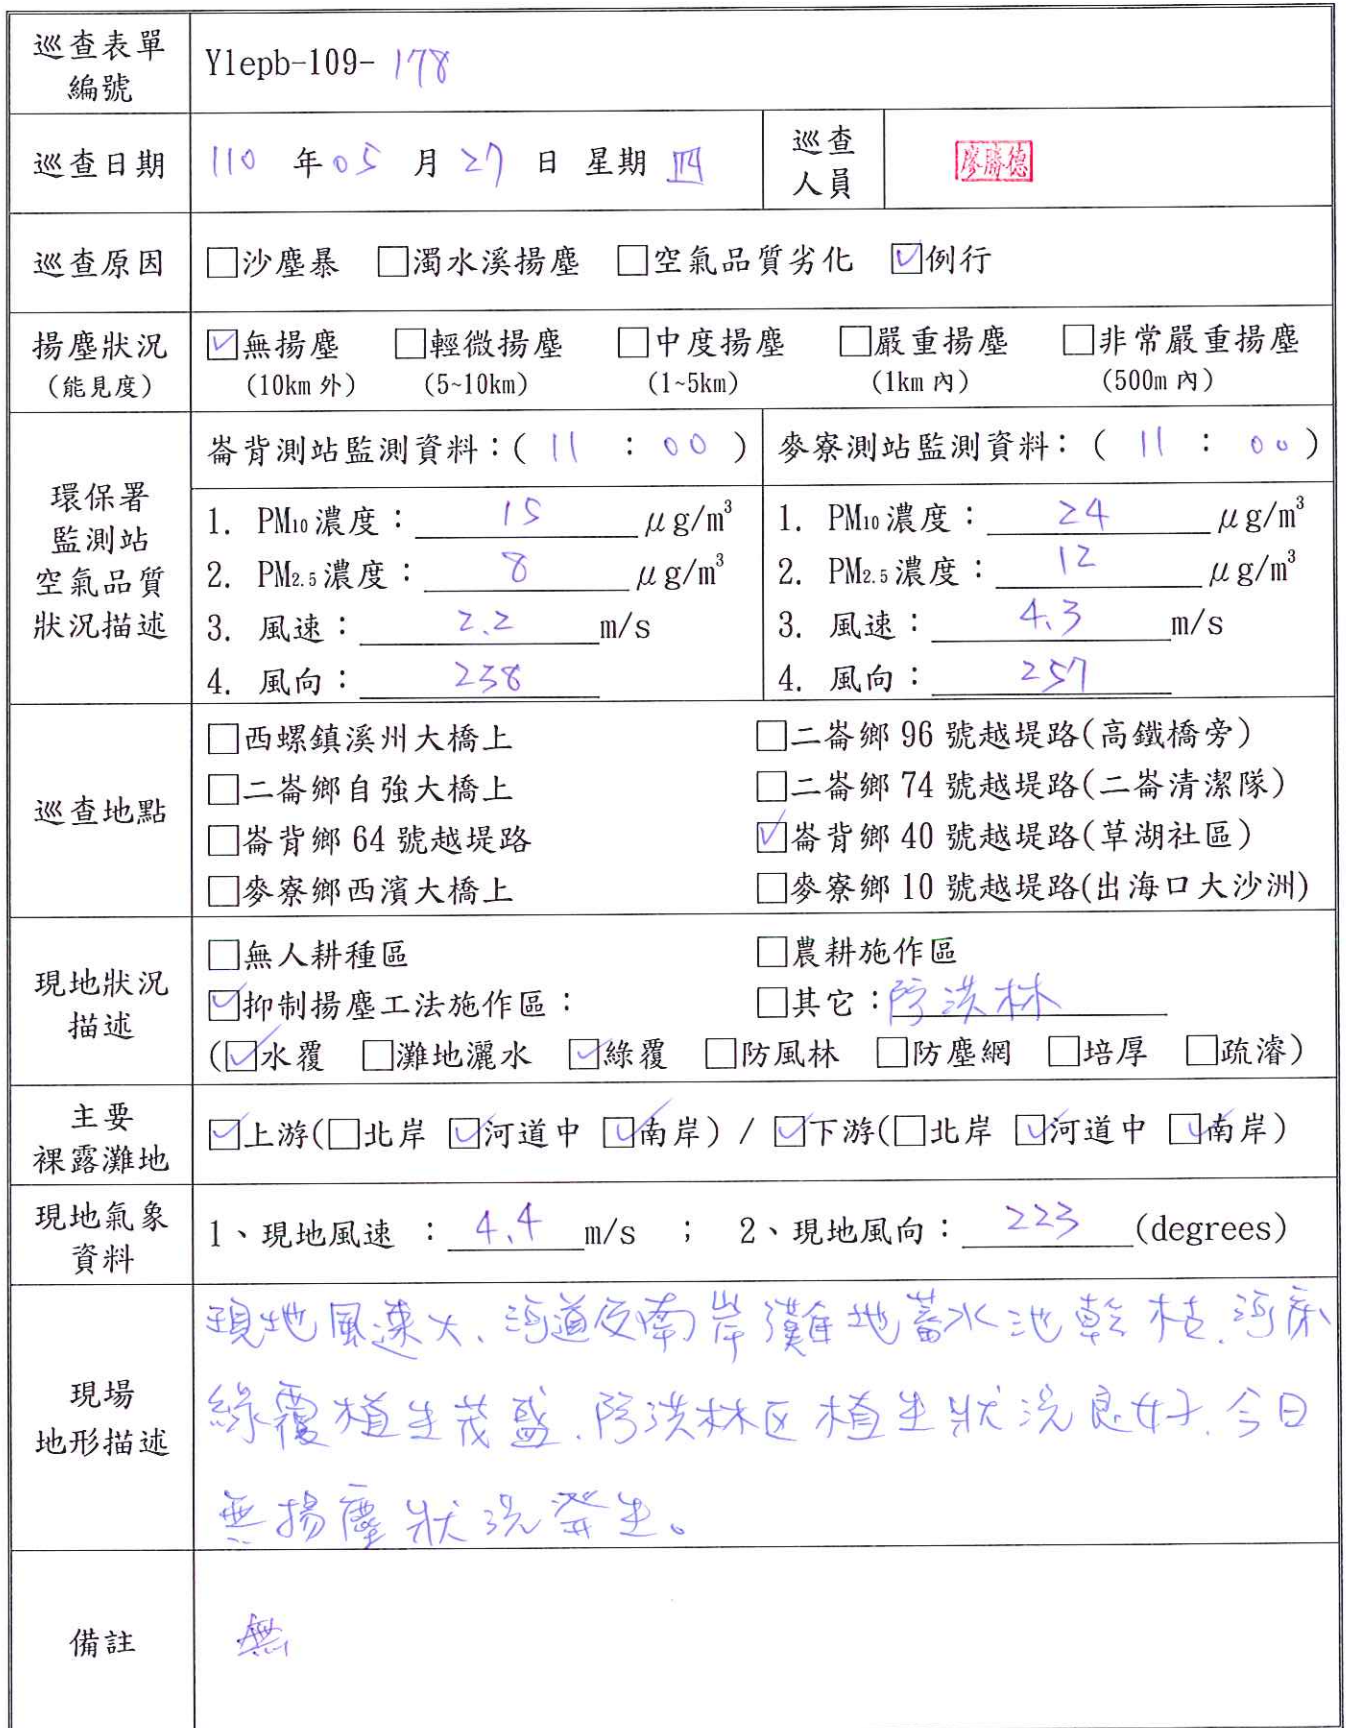 巡查表單
編號
Ylepb-109-178
巡查日期
110 年 05 月 27 日 星期 四
巡查
人員
廖勝德
巡查原因
□沙塵暴 □濁水溪揚塵 □空氣品質劣化 ☑例行
揚塵狀況
(能見度)
☑無揚塵 □輕微揚塵 □中度揚塵 □嚴重揚塵 □非常嚴重揚塵
(10km 外) (5~10km) (1~5km) (1km 內) (500m 內)
環保署
監測站
空氣品質
狀況描述
崙背測站監測資料：( 11 : 00 )
1. PM10 濃度： 15 μg/m³
2. PM2.5 濃度： 8 μg/m³
3. 風速： 2.2 m/s
4. 風向： 238
麥寮測站監測資料：( 11 : 00 )
1. PM10 濃度： 24 μg/m³
2. PM2.5 濃度： 12 μg/m³
3. 風速： 4.3 m/s
4. 風向： 257
巡查地點
□西螺鎮溪州大橋上 □二崙鄉 96 號越堤路(高鐵橋旁)
□二崙鄉自強大橋上 □二崙鄉 74 號越堤路(二崙清潔隊)
□崙背鄉 64 號越堤路 ☑崙背鄉 40 號越堤路(草湖社區)
□麥寮鄉西濱大橋上 □麥寮鄉 10 號越堤路(出海口大沙洲)
現地狀況
描述
□無人耕種區 □農耕施作區
☑抑制揚塵工法施作區： □其它：防洪林
(☑水覆 □灘地灑水 ☑綠覆 □防風林 □防塵網 □培厚 □疏濬)
主要
裸露灘地
☑上游(□北岸 ☑河道中 ☑南岸) / ☑下游(□北岸 ☑河道中 ☑南岸)
現地氣象
資料
1、現地風速 ： 4.4 m/s ； 2、現地風向： 223 (degrees)
現場
地形描述
現地風速大、河道及南岸灘地蓄水池乾枯.河床
綠覆植生茂盛.防洪林区植生狀況良好.今日
無揚塵狀況發生。
備註
無